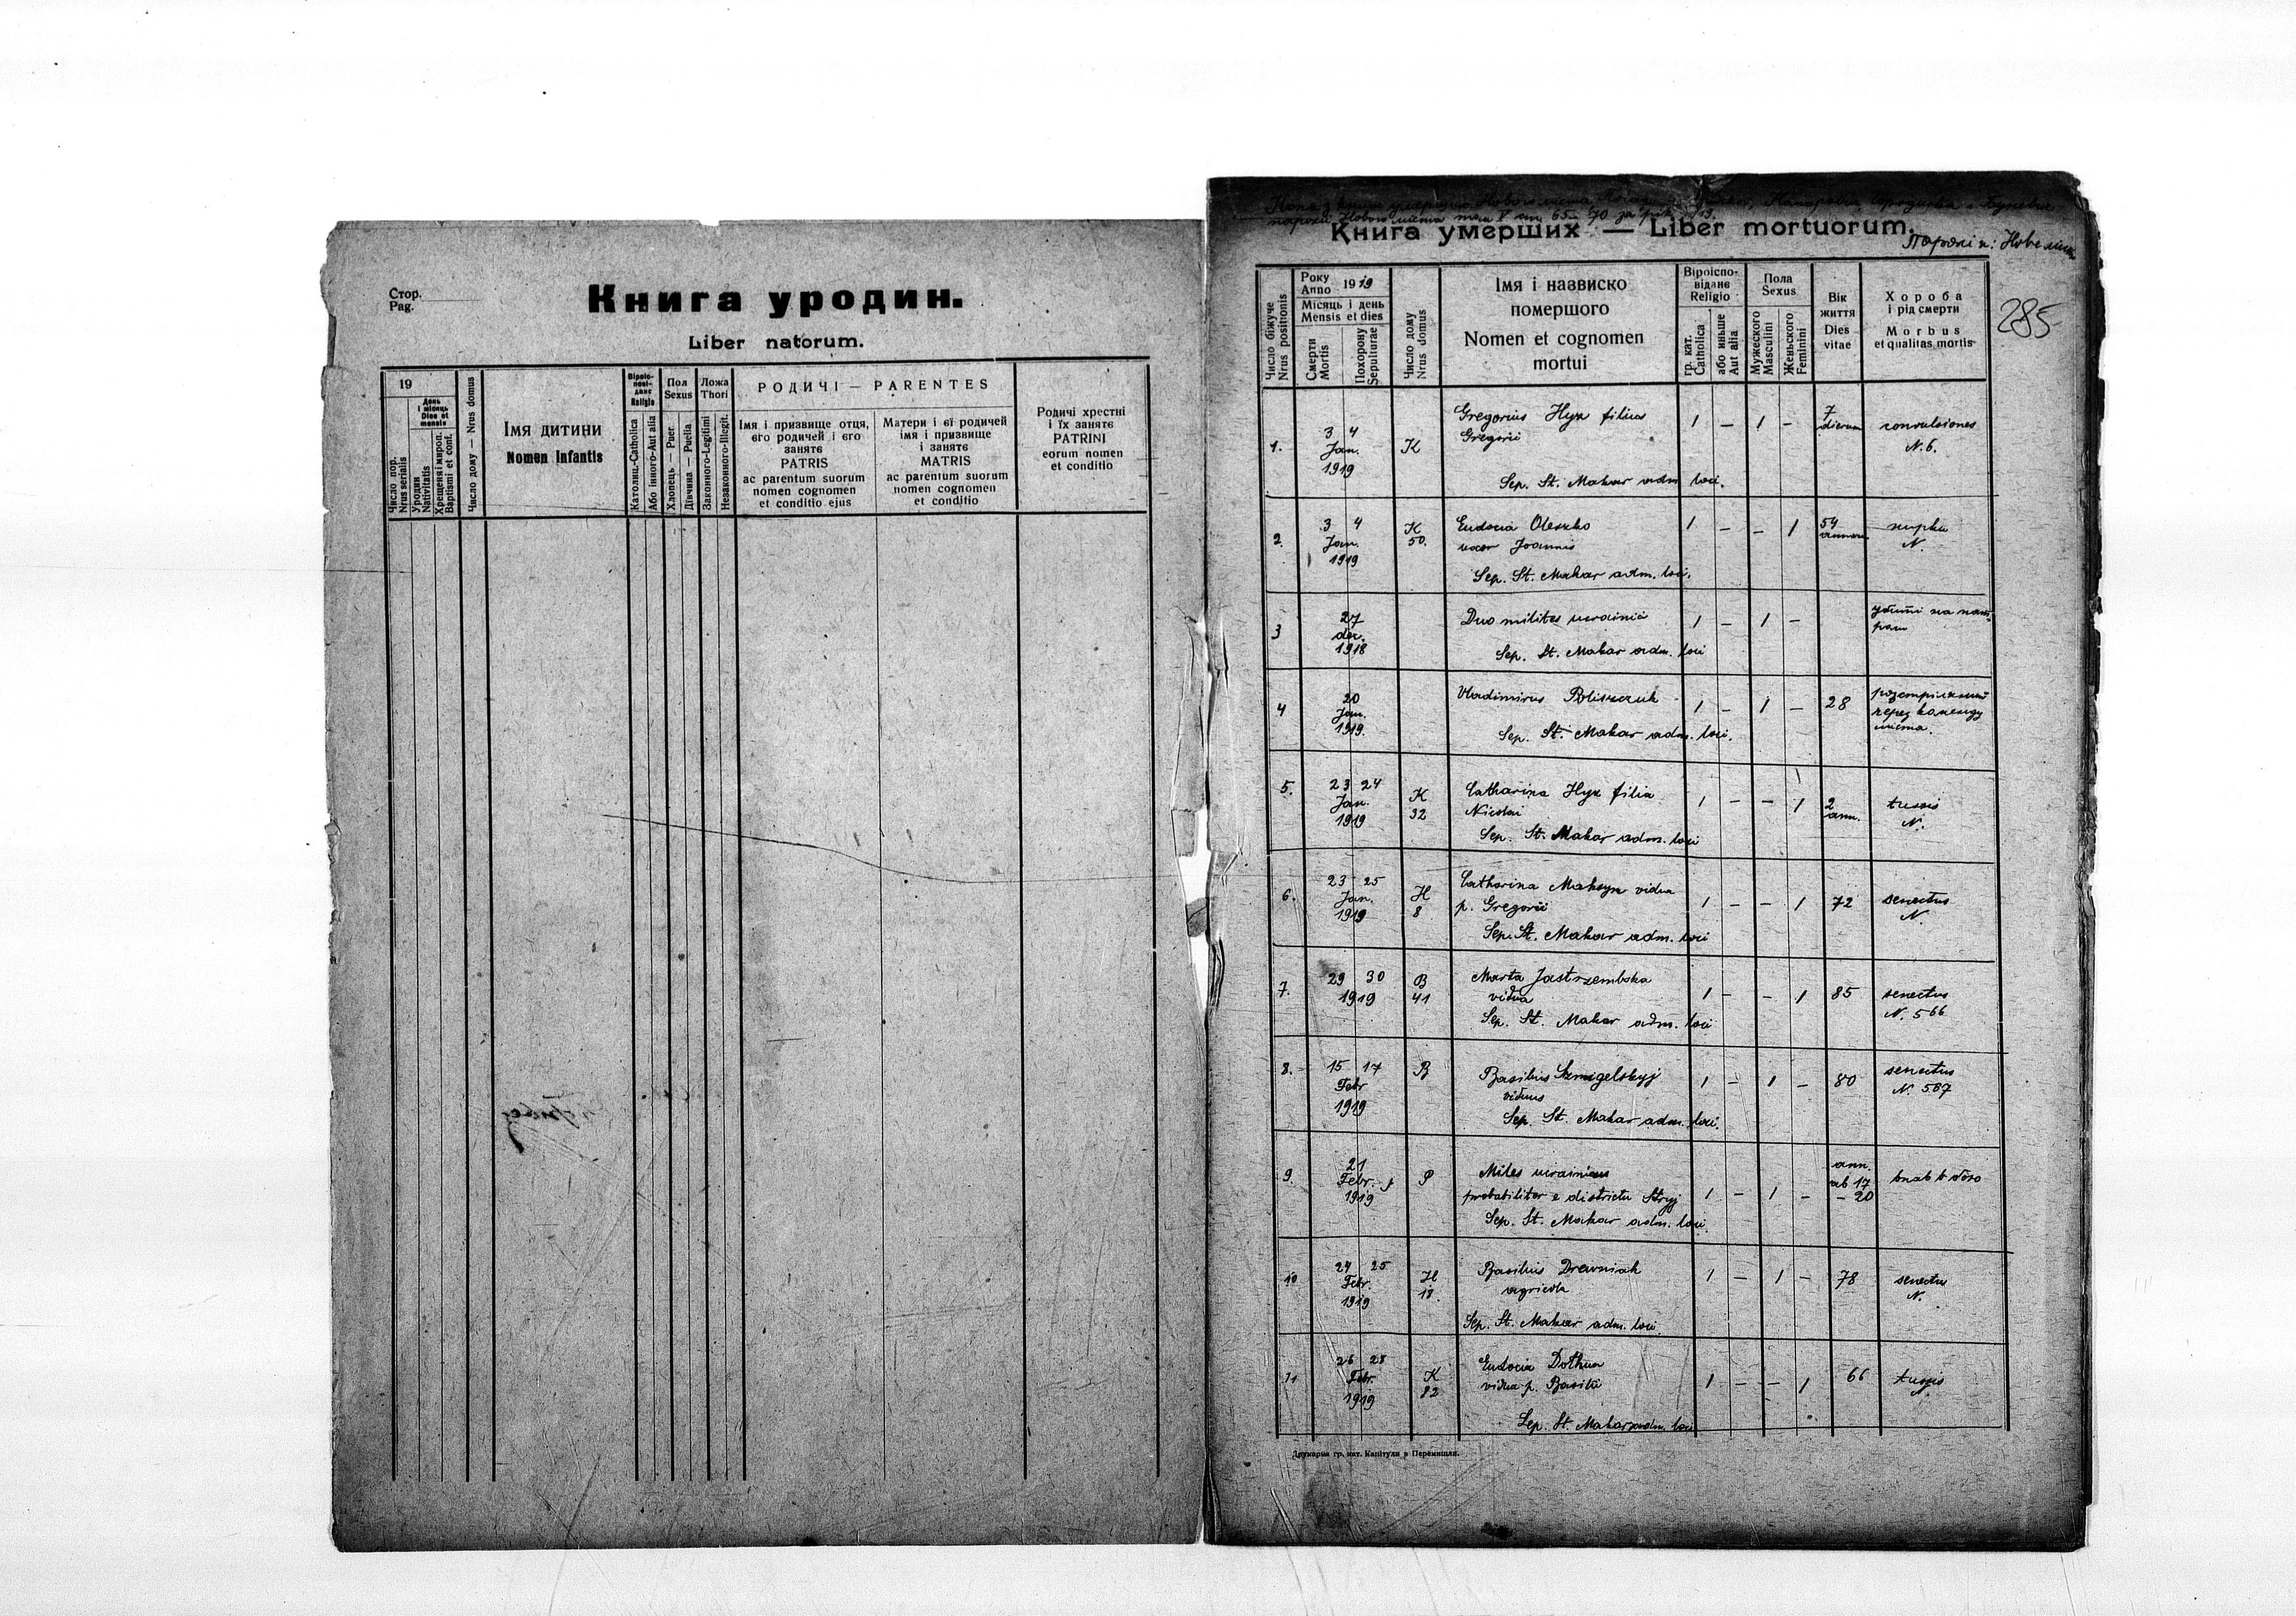 Стор.
Pag.
Книга уродин.
Liber natorum.
19
День і місяць
Dies et mensis
Число пор.
Nrus serialis
Уродин
Nativitatis
Хрещеня і миропом.
Baptismi et conf.
Число дому — Nrus domus
Імя дитини
Nomen Infantis
Віроіс-
повід-
данє
Religio
Католиц.-Catholica
Або инного-Aut alia
Пол
Sexus
Хлопець — Puer
Дівчина — Puella
Ложа
Thori
Законного-Legitimi
Незаконного-Illegit.
РОДИЧІ — PARENTES
Імя і призвище отця,
єго родичей і єго
занятє
PATRIS
ac parentum suorum
nomen cognomen
et conditio ejus
Матери і єї родичей
імя і призвище
і занятє
MATRIS
ac parentum suorum
nomen cognomen
et conditio
Родичі хрестні
і їх занятє
PATRINI
eorum nomen
et conditio
Книга умерших — Liber mortuorum.
285
Число біжуче
Nrus positionis
Року
Anno 1919
Місяць і день
Mensis et dies
Смерти
Mortis
Похорону
Sepulturae
Число дому
Nrus domus
Імя і назвиско
помершого
Nomen et cognomen
mortui
Віроіспо-
віданє
Religio
гр. кат.
Catholica
або иньше
Aut alia
Пола
Sexus
Мужеского
Masculini
Женьского
Feminini
Вік
життя
Dies
vitae
Хороба
і рід смерти
Morbus
et qualitas mortis
1. 3 4 Jan. 1919 K
Gregorius Hyz filius
Gregorii
1 — 1 — 7 dierum convulsiones
N. 6.
Sep. St. Makar adm. loci.
2. 3 4 Jan. 1919 K 50.
Eudocia Oleszko
uxor Joannis
1 — — 1 54 annorum
N.
Sep. St. Makar adm. loci.
3 27 dec. 1918
Duo milites ucrainici
1 — 1 —
Sep. St. Makar adm. loci
4 20 Jan. 1919.
Vladimirus Poliszczuk
1 — 1 — 28 розстріляний
через команду
міста.
Sep. St. Makar adm. loci.
5. 23 24 Jan. 1919 K 32
Catharina Hyz filia
Nicolai
1 — — 1 2 ann. tussis
N.
Sep. St. Makar adm. loci
6. 23 25 Jan. 1919 H 8
Catharina Maksym vidua
p. Gregorii
1 — — 1 72 senectus
N.
Sep. St. Makar adm. loci
7. 29 30 1919 B 41
Marta Jastrzembska
vidua
1 — — 1 85 senectus
N. 566
Sep. St. Makar adm. loci
8. 15 17 Febr 1919 B
Basilius Szmigelskyj
viduus
1 — 1 — 80 senectus
N. 567
Sep. St. Makar adm. loci.
9. 21 Febr. 1919 P
Miles ucrainicus
probabiliter e districtu Stryj
1 — 1 — ann. ab 17 — 20
Sep. St. Makar adm. loci.
10 24 25 Febr. 1919 H 18.
Basilius Drewniak
agricola
1 — 1 — 78 senectus
N.
Sep. St. Makar adm. loci.
11 26 28 Febr. 1919 K 82
Eudocia Dothun
vidua p. Basilii
1 — — 1 66 tussis
Sep. St. Makar adm. loci
Друкарня гр. кат. Капітули в Перемишли.